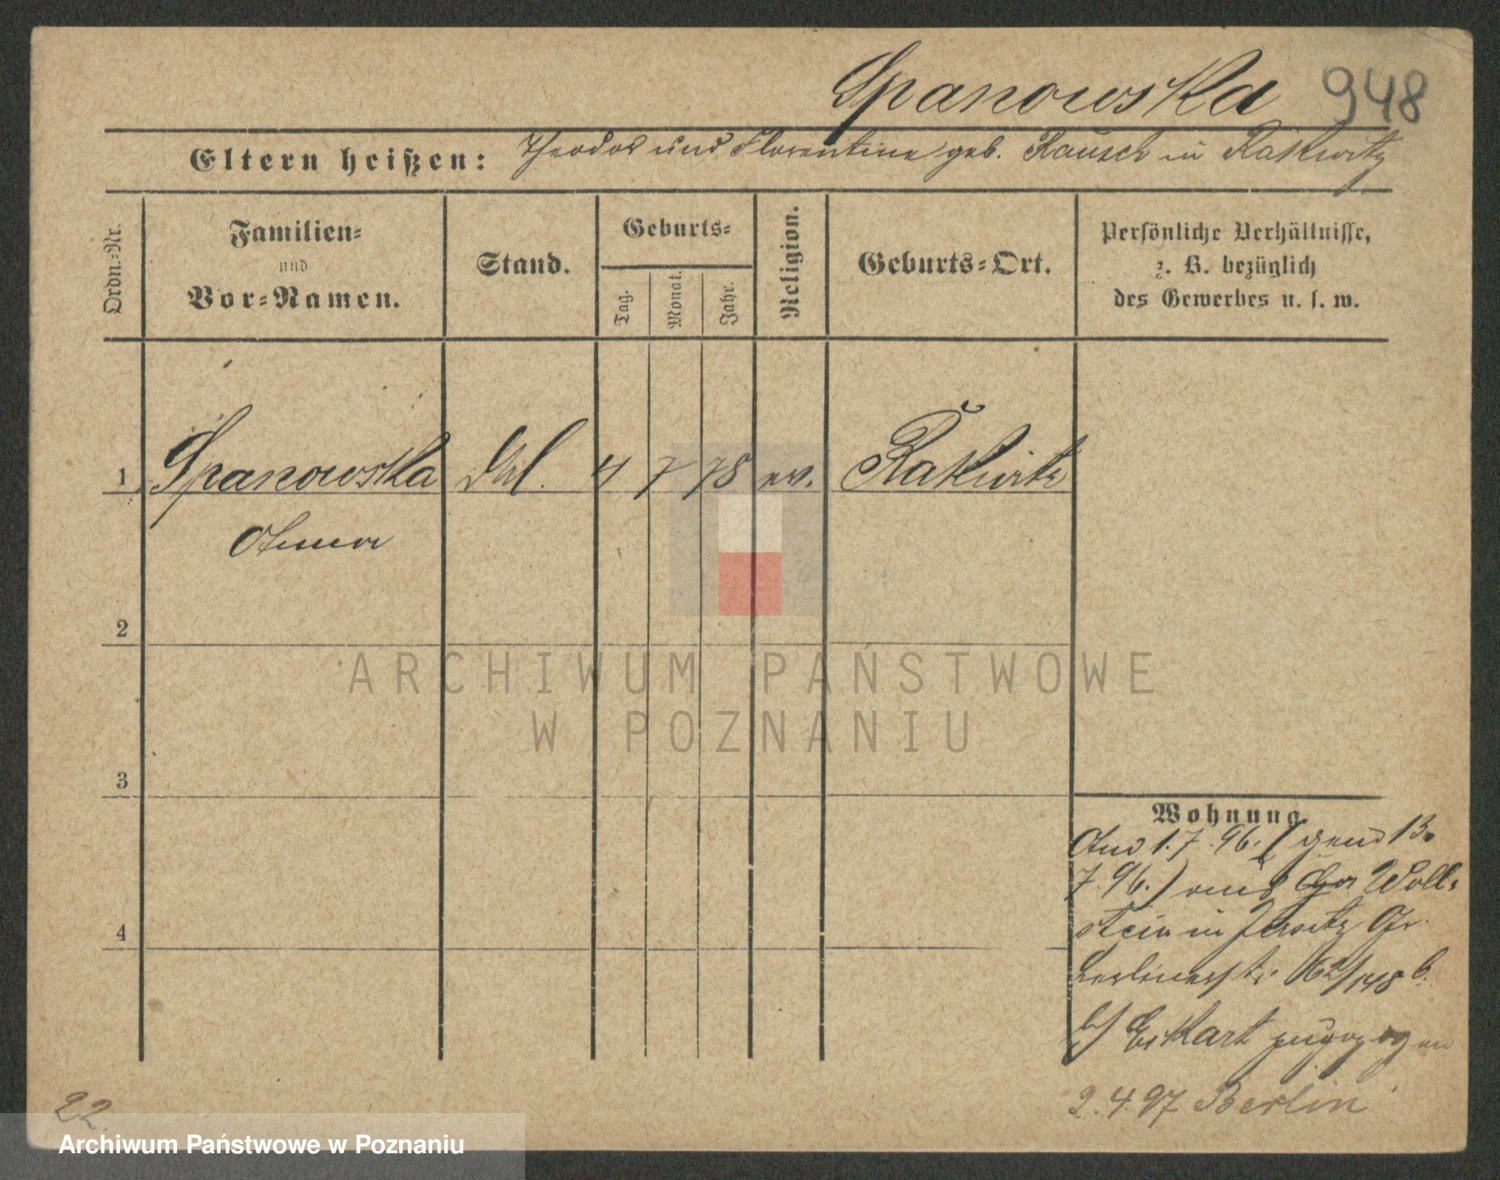 Spanowska 948
Eltern heißen: Theodor und Florentine geb. Rausch in Rakwitz
Ordn.-Nr.
Familien-
und
Vor-Namen.
Stand.
Geburts-
Tag.
Monat.
Jahr.
Religion.
Geburts-Ort.
Persönliche Verhältnisse,
z. B. bezüglich
des Gewerbes u. s. w.
1 Spanowska 4 7 78 ev. Rakwitz
Anna
2
3
4
Wohnung
1.7.96. ( 13.
7.96.) aus Woll-
stein in Jersitz Gr.
Berlinerstr. b.
b/ Eckart zugezogen
2.4.97 Berlin
22.
ARCHIWUM PAŃSTWOWE
W POZNANIU
Archiwum Państwowe w Poznaniu